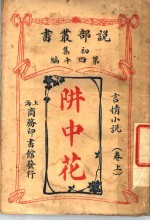 說部叢書
初集
第四十編
言情小說
阱中花
(卷上)
上海商務印書館發行